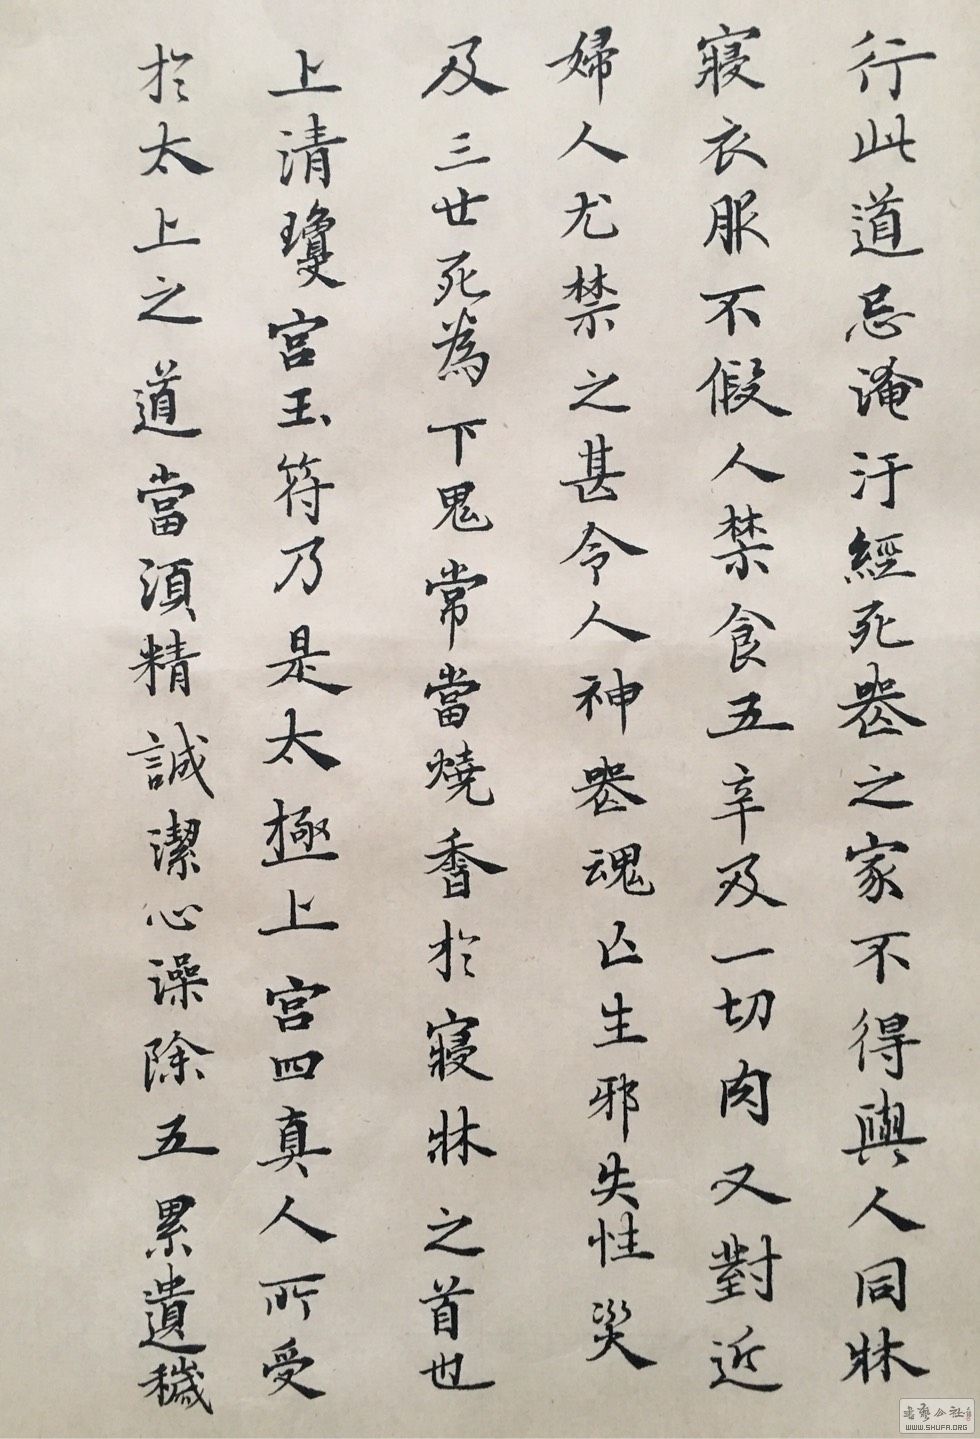 行此道忌淹汙經死喪之家不得與人同牀
寢衣服不假人禁食五辛及一切肉又對近
婦人尤禁之甚令人神喪魂亡生邪失性災
及三世死為下鬼常當燒香於寢牀之首也
上清瓊宮玉符乃是太極上宮四真人所受
於太上之道當須精誠潔心澡除五累遺穢
書藝公社
WWW.SHUFA.ORG